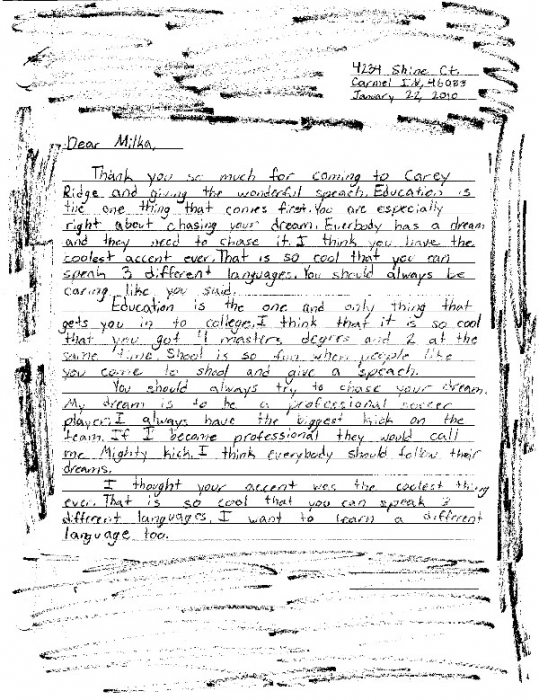 4234 Shine Ct.
Carmel I.N, 46033
January 22, 2010
Dear Milka,
Thank you so much for coming to Carey
Ridge and giving the wonderful speach. Education is
the one thing that comes first. You are especially
right about chasing your dream. Everbody has a dream
and they need to chase it. I think you have the
coolest accent ever. That is so cool that you can
speak 3 different languages. You should always be
caring like you said.
Education is the one and only thing that
gets you in to college. I think that it is so cool
that you got 4 masters degres and 2 at the
same time. Shool is so fun when people like
you come to shool and give a speach.
You should always try to chase your dream.
My dream is to be a professional soccer
player. I always have the biggest kick on the
team. If I become professional they would call
me Mighty kick. I think everybody should follow their
dreams.
I thought your accent was the coolest thing
ever. That is so cool that you can speak 3
different languages. I want to learn a different
language too.